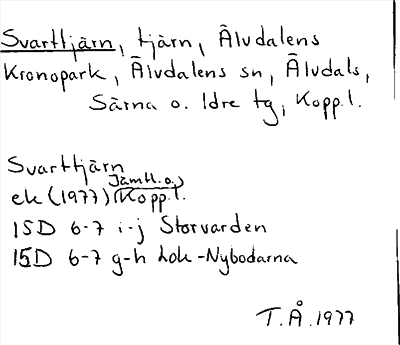 Svarttjärn, tjärn, Älvdalens
Kronopark, Älvdalens sn, Älvdals,
Särna o. Idre tg, Kopp.l.
Svarttjärn
Jämtl.o.
ek (1977) Kopp.l.
15D 6-7 i-j Storvarden
15D 6-7 g-h Lok-Nybodarna
T.Å.1977